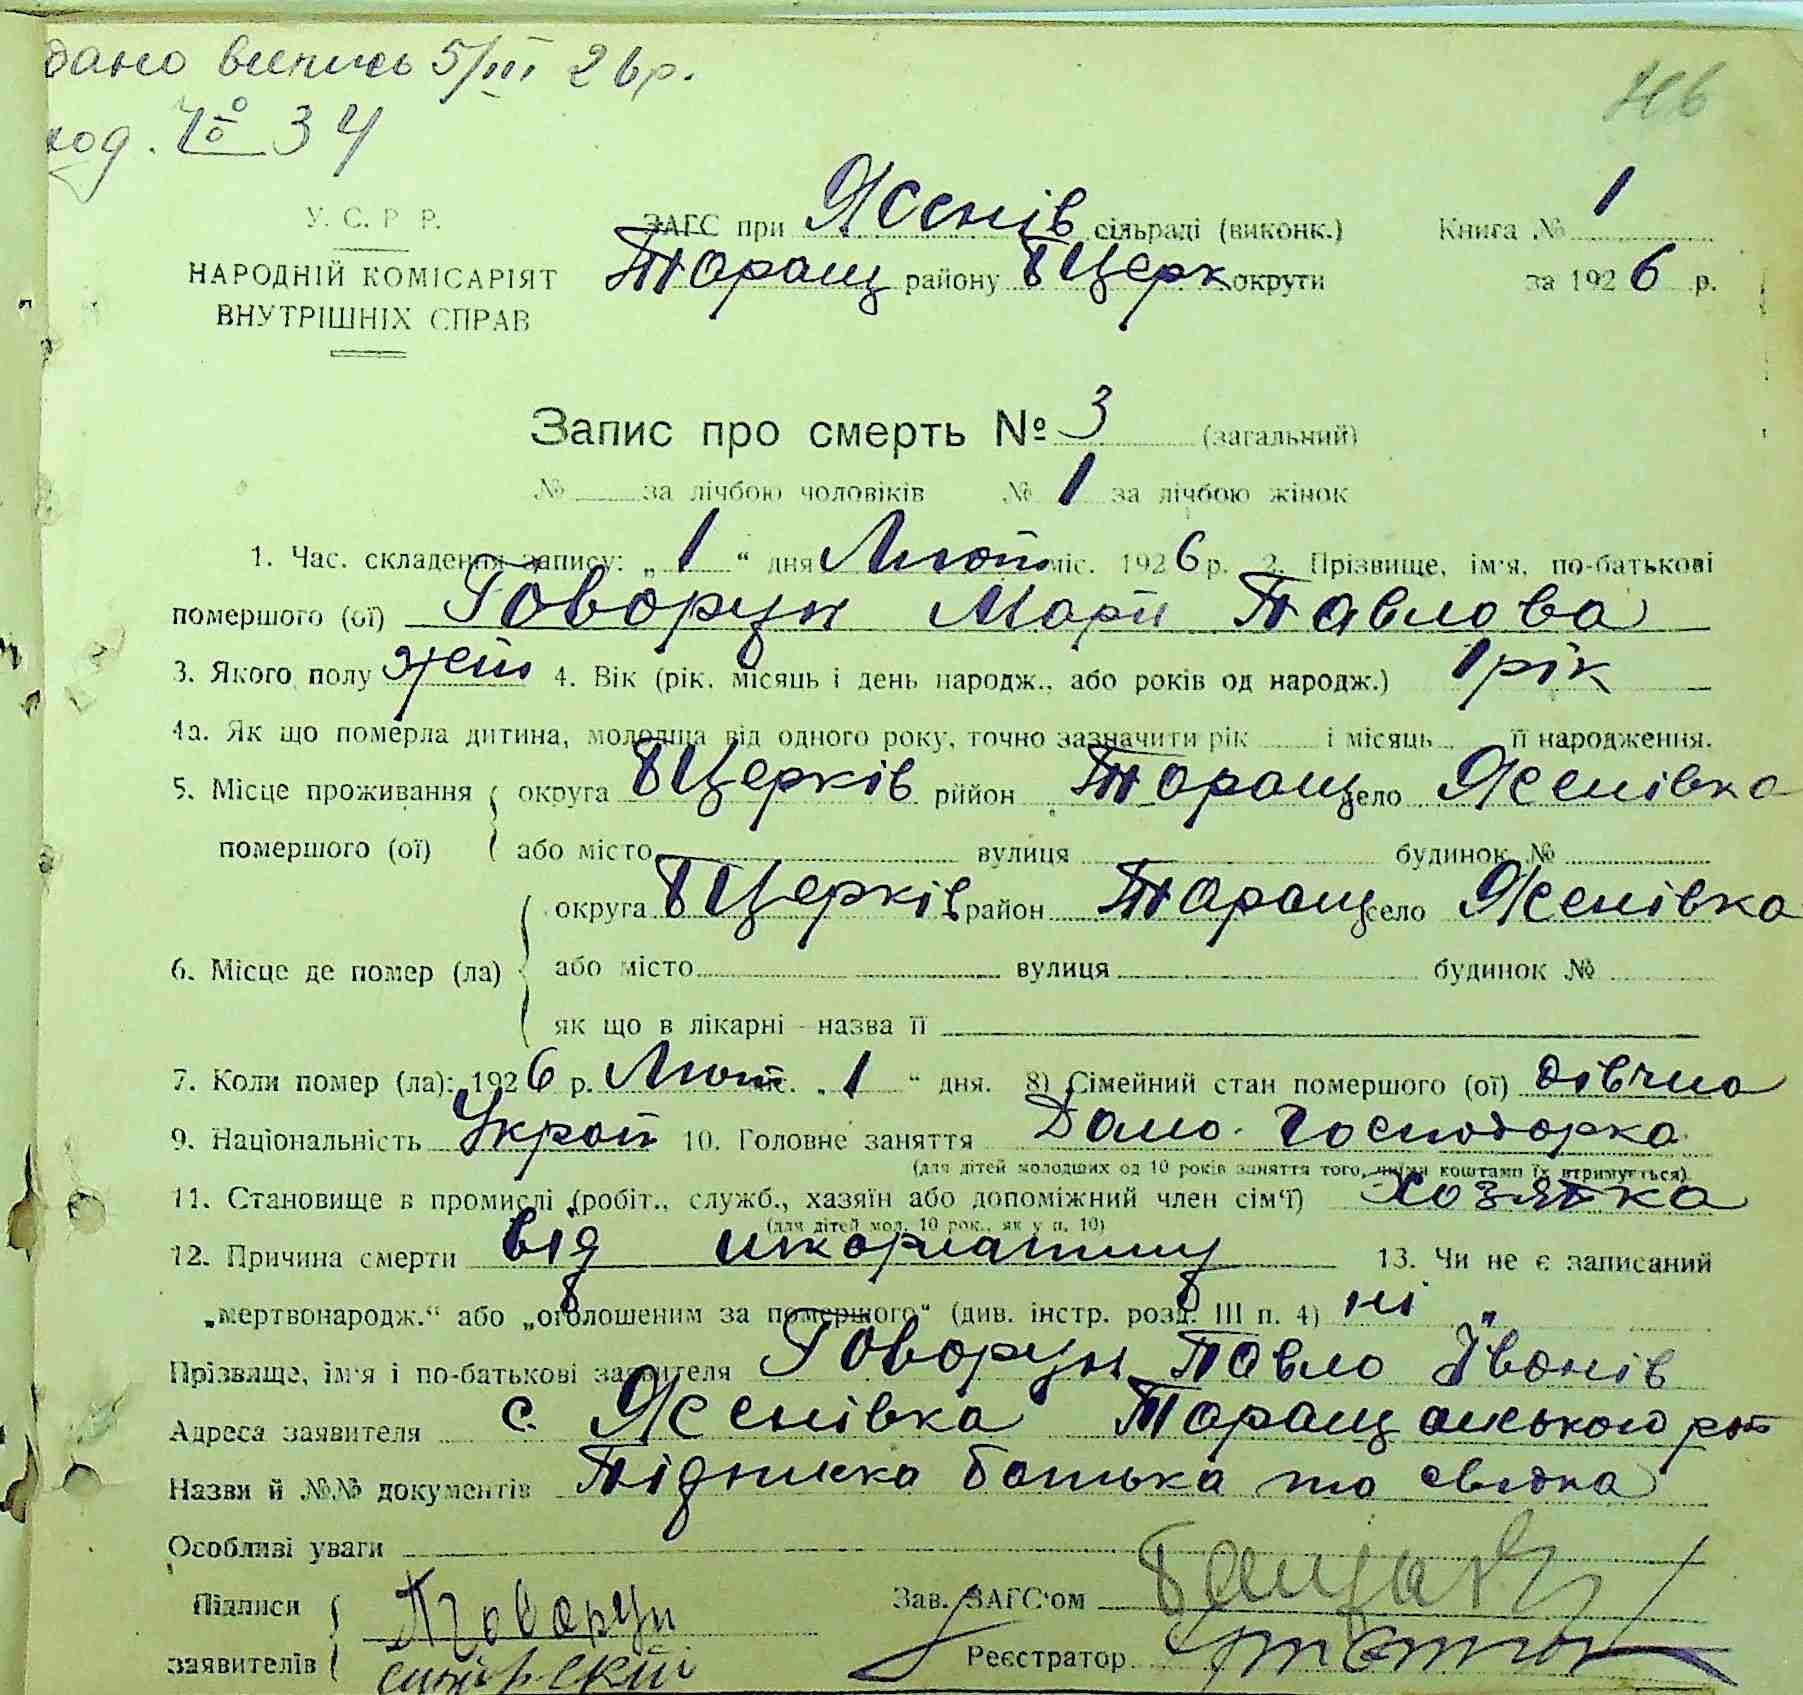 дано випись 5/III 26р.
под. № 34
У. С. Р. Р.
НАРОДНІЙ КОМІСАРІЯТ
ВНУТРІШНІХ СПРАВ
ЗАГС при Ясенів сільраді (виконк.) Книга № 1
Таращ району БЦерк округи за 1926 р.
Запис про смерть № 3 (загальний)
№ за лічбою чоловіків № 1 за лічбою жінок
1. Час. складення запису: „1“ дня Лют міс. 1926 р. 2. Прізвище, ім'я, по-батькові
помершого (ої) Говорун Марії Павлова
3. Якого полу жен 4. Вік (рік, місяць і день народж., або років од народж.) 1 рік
4а. Як що померла дитина, молодша від одного року, точно зазначити рік і місяць її народження.
5. Місце проживання округа БЦерків район Таращ село Ясенівка
помершого (ої) або місто вулиця будинок №
округа БЦерків район Таращ село Ясенівка
6. Місце де помер (ла) або місто вулиця будинок №
як що в лікарні - назва її
7. Коли помер (ла): 1926 р. Лют міс. „1“ дня. 8) Сімейний стан помершого (ої) дівчна
9. Національність Украй 10. Головне заняття Домо. Господорка
(для дітей молодших од 10 років заняття того, чиїми коштами їх втримується)
11. Становище в промислі (робіт., служб., хазяїн або допоміжний член сім'ї) хозяйка
(для дітей мол. 10 рок., як у п. 10)
12. Причина смерти від шкорлатину 13. Чи не є записаний
„мертвонародж.“ або „оголошеним за помершого“ (див. інстр. розд. III п. 4) ні
Прізвище, ім'я і по-батькові заявителя Говорун Павло Іванів
Адреса заявителя с. Ясенівка Таращанського
Назви й №№ документів Підписка батька та свідка
Особливі уваги
Підписи Говорун Зав. ЗАГС'ом
заявителів Реєстратор